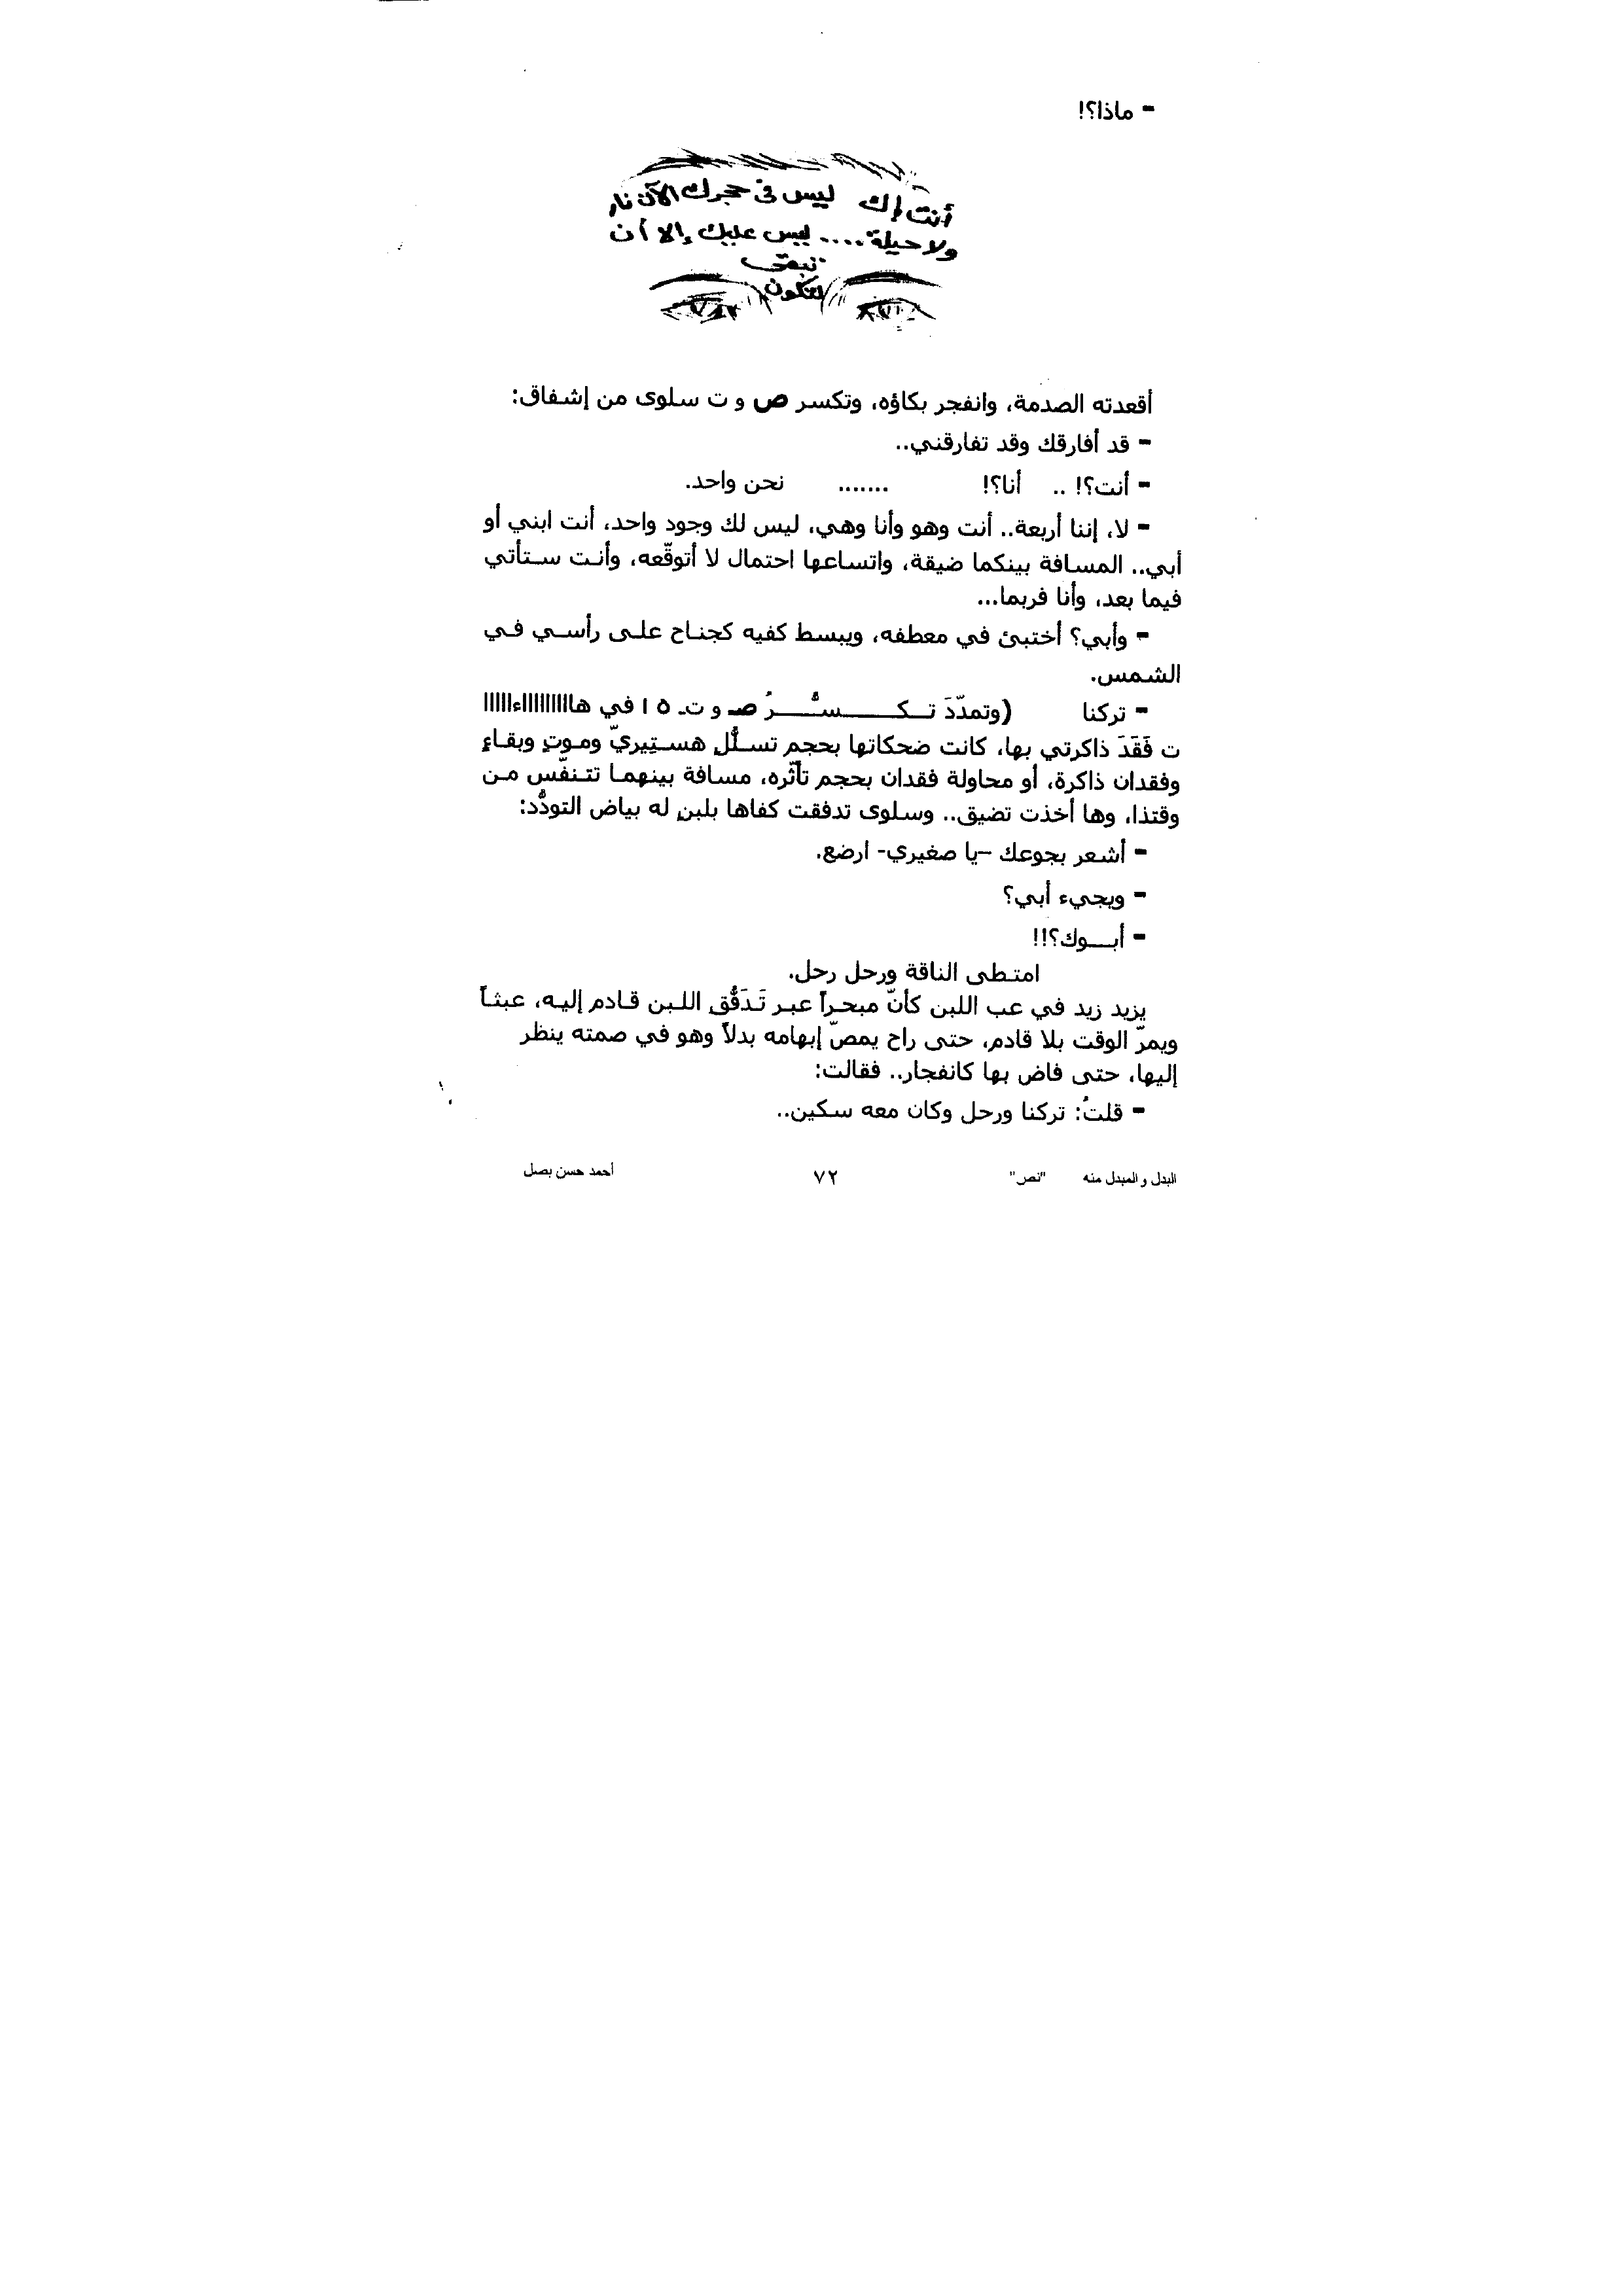 - ماذا؟!
أنت إك ليس في حجرك الآن نار
ولا حيلة.... ليس عليك إلا أن
تبقى
لتكون
أقعدته الصدمة، وانفجر بكاؤه، وتكسر ص و ت سلوى من إشفاق:
- قد أفارقك وقد تفارقني..
- أنت؟! .. أنا؟! ....... نحن واحد.
- لا، إننا أربعة.. أنت وهو وأنا وهي، ليس لك وجود واحد، أنت ابني أو
أبي.. المسافة بينكما ضيقة، واتساعها احتمال لا أتوقّعه، وأنت ستأتي
فيما بعد، وأنا فربما...
- وأبي؟ أختبئ في معطفه، ويبسط كفيه كجناح على رأسي في
الشمس.
- تركنا (وتمدّدَ تـكـــــــسُّـــــرُ صـ و تـ ه ا في هاااااااااءاااااا
ت فَقَدَ ذاكرتي بها، كانت ضحكاتها بحجم تسلُّلٍ هستِيريّ وموتٍ وبقاءٍ
وفقدان ذاكرة، أو محاولة فقدان بحجم تأثّره، مسافة بينهما تتنفّس من
وقتذا، وها أخذت تضيق.. وسلوى تدفقت كفاها بلبنٍ له بياض التودُّد:
- أشعر بجوعك –يا صغيري- ارضع.
- ويجيء أبي؟
- أبـــوك؟!!
امتطى الناقة ورحل رحل.
يزيد زيد في عب اللبن كأنّ مبحراً عبر تَدَفُّقِ اللبن قادم إليه، عبثاً
ويمرّ الوقت بلا قادم، حتى راح يمصّ إبهامه بدلاً وهو في صمته ينظر
إليها، حتى فاض بها كانفجار.. فقالت:
- قلتُ: تركنا ورحل وكان معه سكين..
البدل و المبدل منه "نص" ٧٢ أحمد حسن بصل